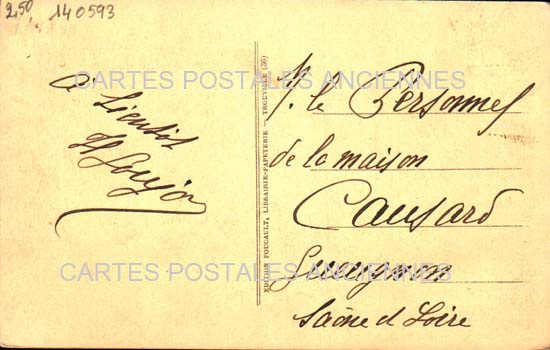 2,50 140593
CARTES POSTALES ANCIENNES
à bientôt
EDITION FOUCAULT, LIBRAIRIE-PAPETERIE — TROUVILLE (36)
le Personnel
de la maison
Causard
Gueugnon
Saône et Loire
CARTES POSTALES ANCIENNES